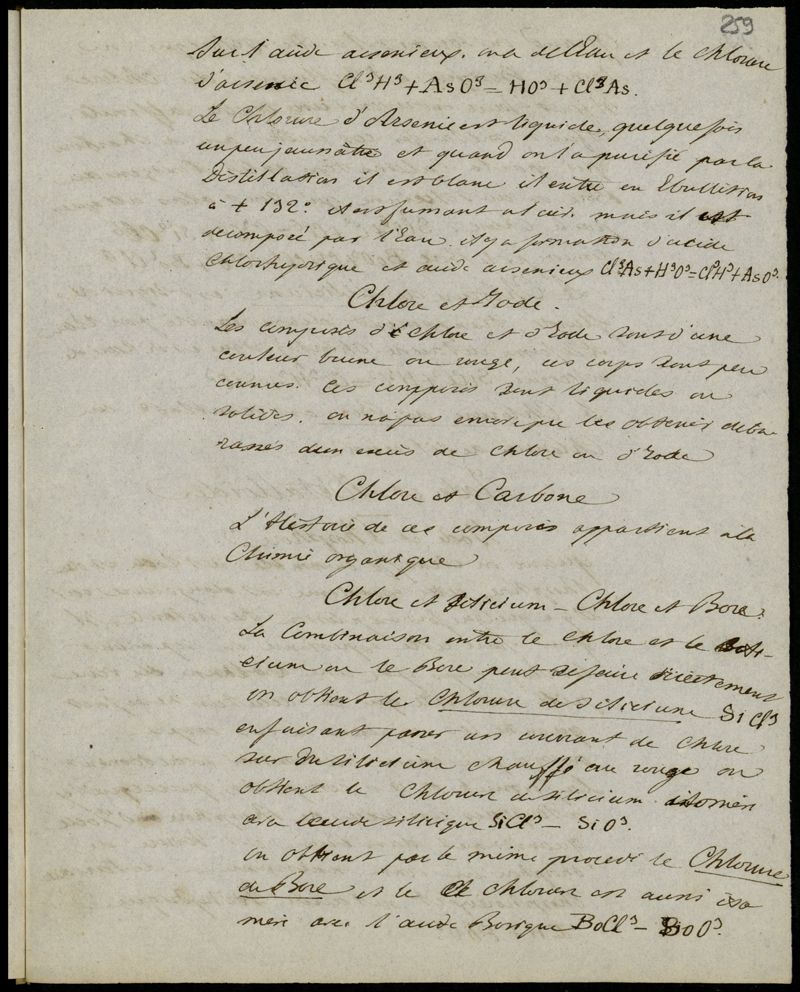 259
Sur l'acide arsenieux. on a de l'Eau et le chlorure
d'arsenic Cl³H³ + AsO³ = HO³ + Cl³As.
Le Chlorure d'Arsenic est liquide, quelquefois
un peu jaunâtre et quand on l'a purifié par la
Distillation il est blanc il entre en Ebullition
à + 132° il est fumant à l'air. mais il est
decomposé par l'Eau. il y a formation d'acide
chlorhydrique et acide arsenieux Cl³As + H³O³ = Cl³H³ + AsO³.
Chlore et Iode.
Les composés de chlore et d'Iode sont d'une
couleur brune ou rouge, ces corps sont peu
connus. Ces composés sont liquides ou
solides. on n'a pas encore pu les obtenir deba
rassés d'un excès de chlore ou d'Iode
Chlore et Carbone
L'Histoire de ces composés appartient à la
Chimie organique
Chlore et Silicium – Chlore et Bore.
La Combinaison entre le chlore et le Sili-
cium ou le Bore peut se faire directement
on obtient le Chlorure de Silicium Si Cl³
en faisant passer un courant de chlore
sur du silicium chauffé au rouge on
obtient le Chlorure de silicium isomère
avec l'acide silicique SiCl³ – SiO³.
on obtient par le même procédé le Chlorure
de Bore et le chlorure est aussi iso
mère avec l'acide Borique BoCl³ – BoO³.